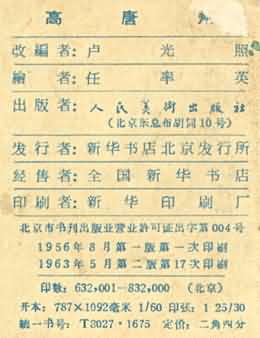 高唐州
改編者：卢光照
繪者：任率英
出版者：人民美術出版社
（北京东总布胡同10号）
发行者：新华书店北京发行所
經售者：全国新华书店
印刷者：新华印刷厂
北京市书刊出版业营业許可証出字第004号
1956年8月第一版第一次印刷
1963年5月第二版第17次印刷
印数：632,001—832,000 （北京）
开本：787×1092毫米 1/60 印张：1 25/30
統一书号：T8027·1675 定价：二角四分